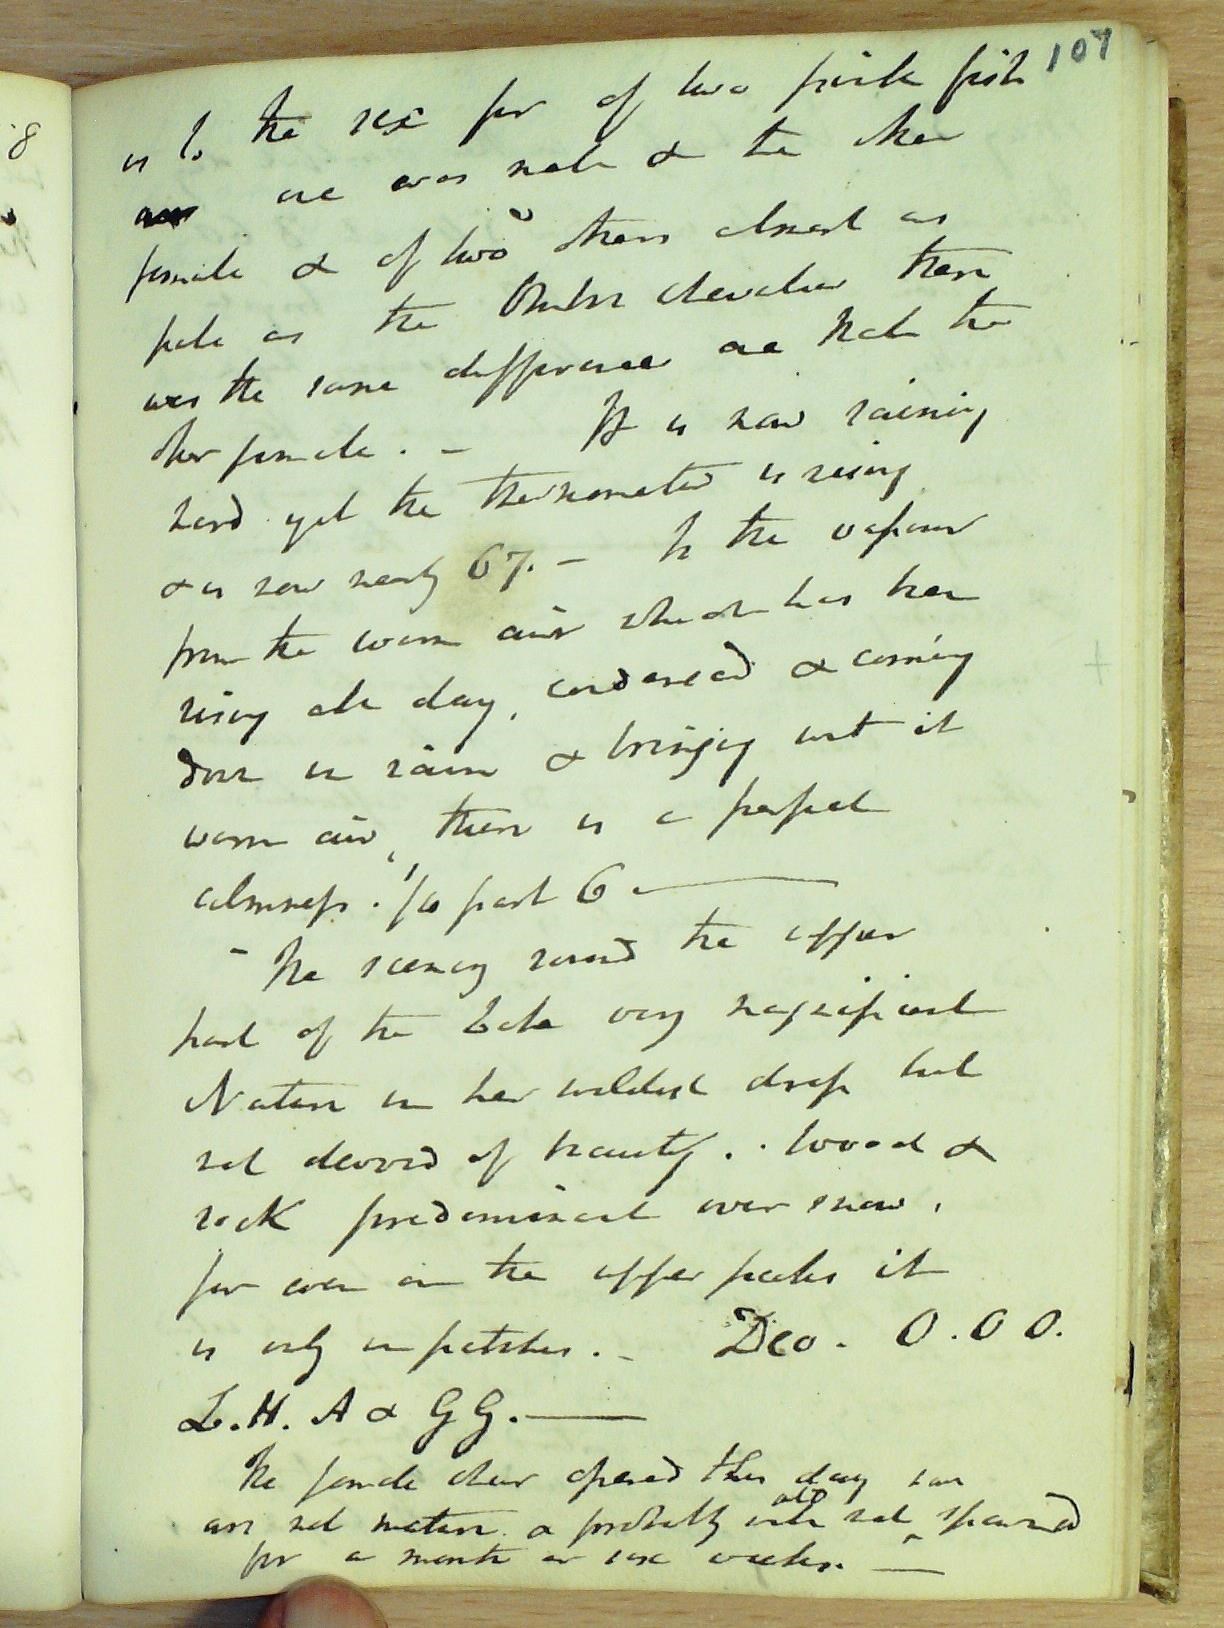 107
is to the sex for of two pink fish
one was male & the other
female & of two others almost as
pale as the Ombre chevalier there
was the same difference one Male the
other female. - It is now raining
hard yet the thermometer is rising
& is now nearly 67. - Is the vapour
from the warm air which has been
rising all day, condensed & coming
down in rain & bringing with it
warm air, there is a perfect
calmness. 1/4 past 6 —
- The scenery round the upper
part of the Lake very magnificent
Nature in her wildest dress but
not devoid of beauty. . Wood &
rock predominant over snow,
for even on the upper peaks it
is only in patches. - Deo. O.O O.
L.H. A & G G. —
The female char opened this day
are not mature & probably will not spawned
for a month or six weeks. —
8